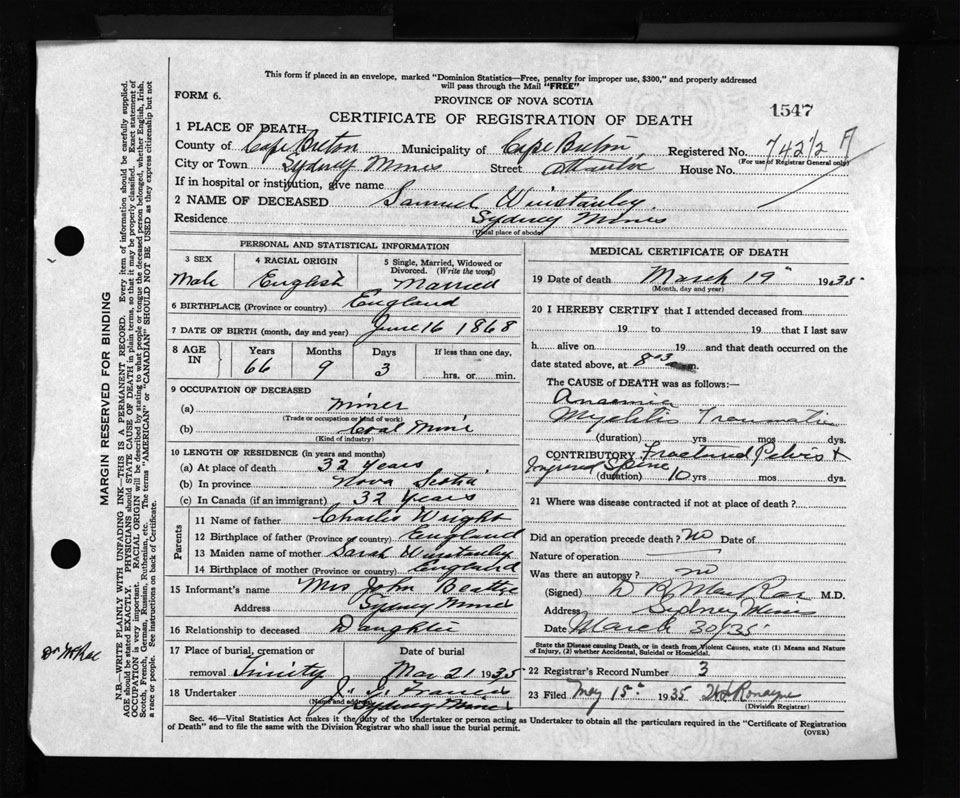 This form if placed in an envelope, marked "Dominion Statistics—Free, penalty for improper use, $300," and properly addressed
will pass through the Mail "FREE"
FORM 6.
PROVINCE OF NOVA SCOTIA
1547
CERTIFICATE OF REGISTRATION OF DEATH
1 PLACE OF DEATH
County of Cape Breton Municipality of Cape Breton Registered No. 742½ A
(For use of Registrar General only)
City or Town Sydney Mines Street House No.
If in hospital or institution, give name
2 NAME OF DECEASED Samuel Winstanley
Residence Sydney Mines
(Usual place of abode)
PERSONAL AND STATISTICAL INFORMATION
3 SEX 4 RACIAL ORIGIN 5 Single, Married, Widowed or Divorced. (Write the word)
Male English Married
6 BIRTHPLACE (Province or country) England
7 DATE OF BIRTH (month, day and year) June 16 1868
8 AGE IN Years Months Days If less than one day,
66 9 3 hrs. or min.
9 OCCUPATION OF DECEASED
(a) Miner
(Trade or occupation or kind of work)
(b) Coal Mine
(Kind of industry)
10 LENGTH OF RESIDENCE (in years and months)
(a) At place of death 32 Years
(b) In province Nova Scotia
(c) In Canada (if an immigrant) 32 Years
Parents
11 Name of father Charles Wright
12 Birthplace of father (Province or country) England
13 Maiden name of mother Sarah Winstanley
14 Birthplace of mother (Province or country) England
15 Informant's name Mrs John
Address Sydney Mines
16 Relationship to deceased Daughter
17 Place of burial, cremation or Date of burial
removal Trinity Mar 21 1935
18 Undertaker J. T. Francis
(Name and address) Sydney Mines
MEDICAL CERTIFICATE OF DEATH
19 Date of death March 19" 1935
(Month, day and year)
20 I HEREBY CERTIFY that I attended deceased from
19 to 19 that I last saw
h alive on 19 and that death occurred on the
date stated above, at m.
The CAUSE of DEATH was as follows:—
Anaemia
Myelitis Traumatic
(duration) yrs mos dys.
CONTRIBUTORY Fractured Pelvis &
Injured Spine
(duration) 10 yrs mos dys.
21 Where was disease contracted if not at place of death?
Did an operation precede death? no Date of
Nature of operation
Was there an autopsy? no
(Signed) M.D.
Address Sydney Mines
Date March 30/35
State the Disease causing Death, or in death from Violent Causes, state (1) Means and Nature of Injury, (2) whether Accidental, Suicidal or Homicidal.
22 Registrar's Record Number 3
23 Filed May 15th 1935
(Division Registrar)
Sec. 46—Vital Statistics Act makes it the duty of the Undertaker or person acting as Undertaker to obtain all the particulars required in the "Certificate of Registration
of Death" and to file the same with the Division Registrar who shall issue the burial permit.
(OVER)
MARGIN RESERVED FOR BINDING
N.B.—WRITE PLAINLY WITH UNFADING INK—THIS IS A PERMANENT RECORD. Every item of information should be carefully supplied.
AGE should be stated EXACTLY. PHYSICIANS should STATE CAUSE OF DEATH in plain terms, so that it may be properly classified. Exact statement of
OCCUPATION is very important. RACIAL ORIGIN will be described by stating to what people or tongue the deceased person belonged, whether English, Irish,
Scotch, French, German, Russian, Ruthenian, etc. The terms "AMERICAN" or "CANADIAN" SHOULD NOT BE USED as they express citizenship but not
a race or people. See instructions on back of Certificate.